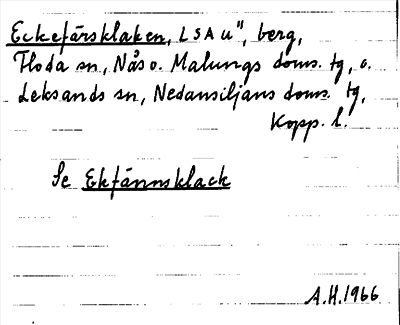 Eckefärsklaken, LSA u", berg,
Floda sn, Nås o. Malungs doms. tg, o.
Leksands sn, Nedansiljans doms. tg,
Kopp. l.
Se Ekfännsklack
A.H. 1966